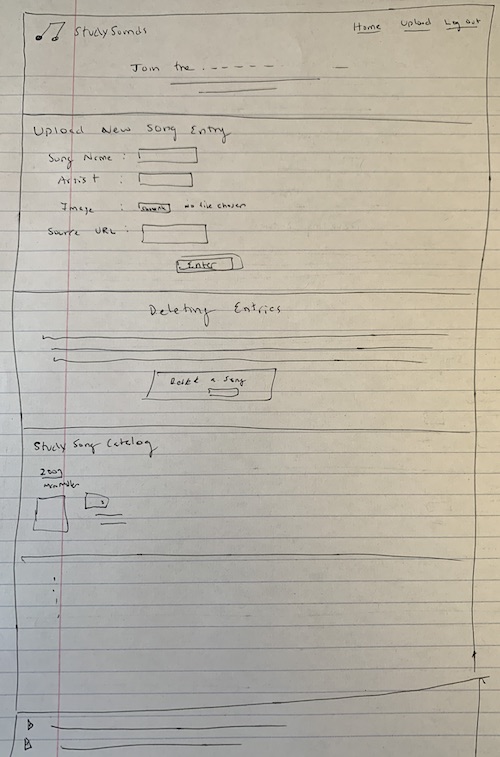 StudySounds
Home Upload Log out
Join the
Upload New Song Entry
Song Name :
Artist :
Image : no file chosen
Source URL :
Enter
Deleting Entries
a Song
Study Song Catalog